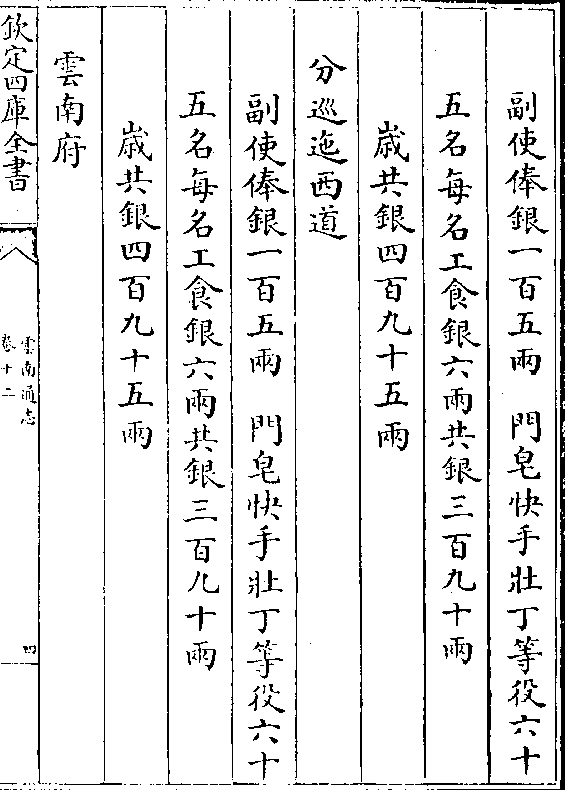 副使俸銀一百五兩　門皂快手壯丁等役六十
五名每名工食銀六兩共銀三百九十兩
歲共銀四百九十五兩
分巡迤西道
副使俸銀一百五兩　門皂快手壯丁等役六十
五名每名工食銀六兩共銀三百九十兩
歲共銀四百九十五兩
雲南府
欽定四庫全書
雲南通志
卷十二
四